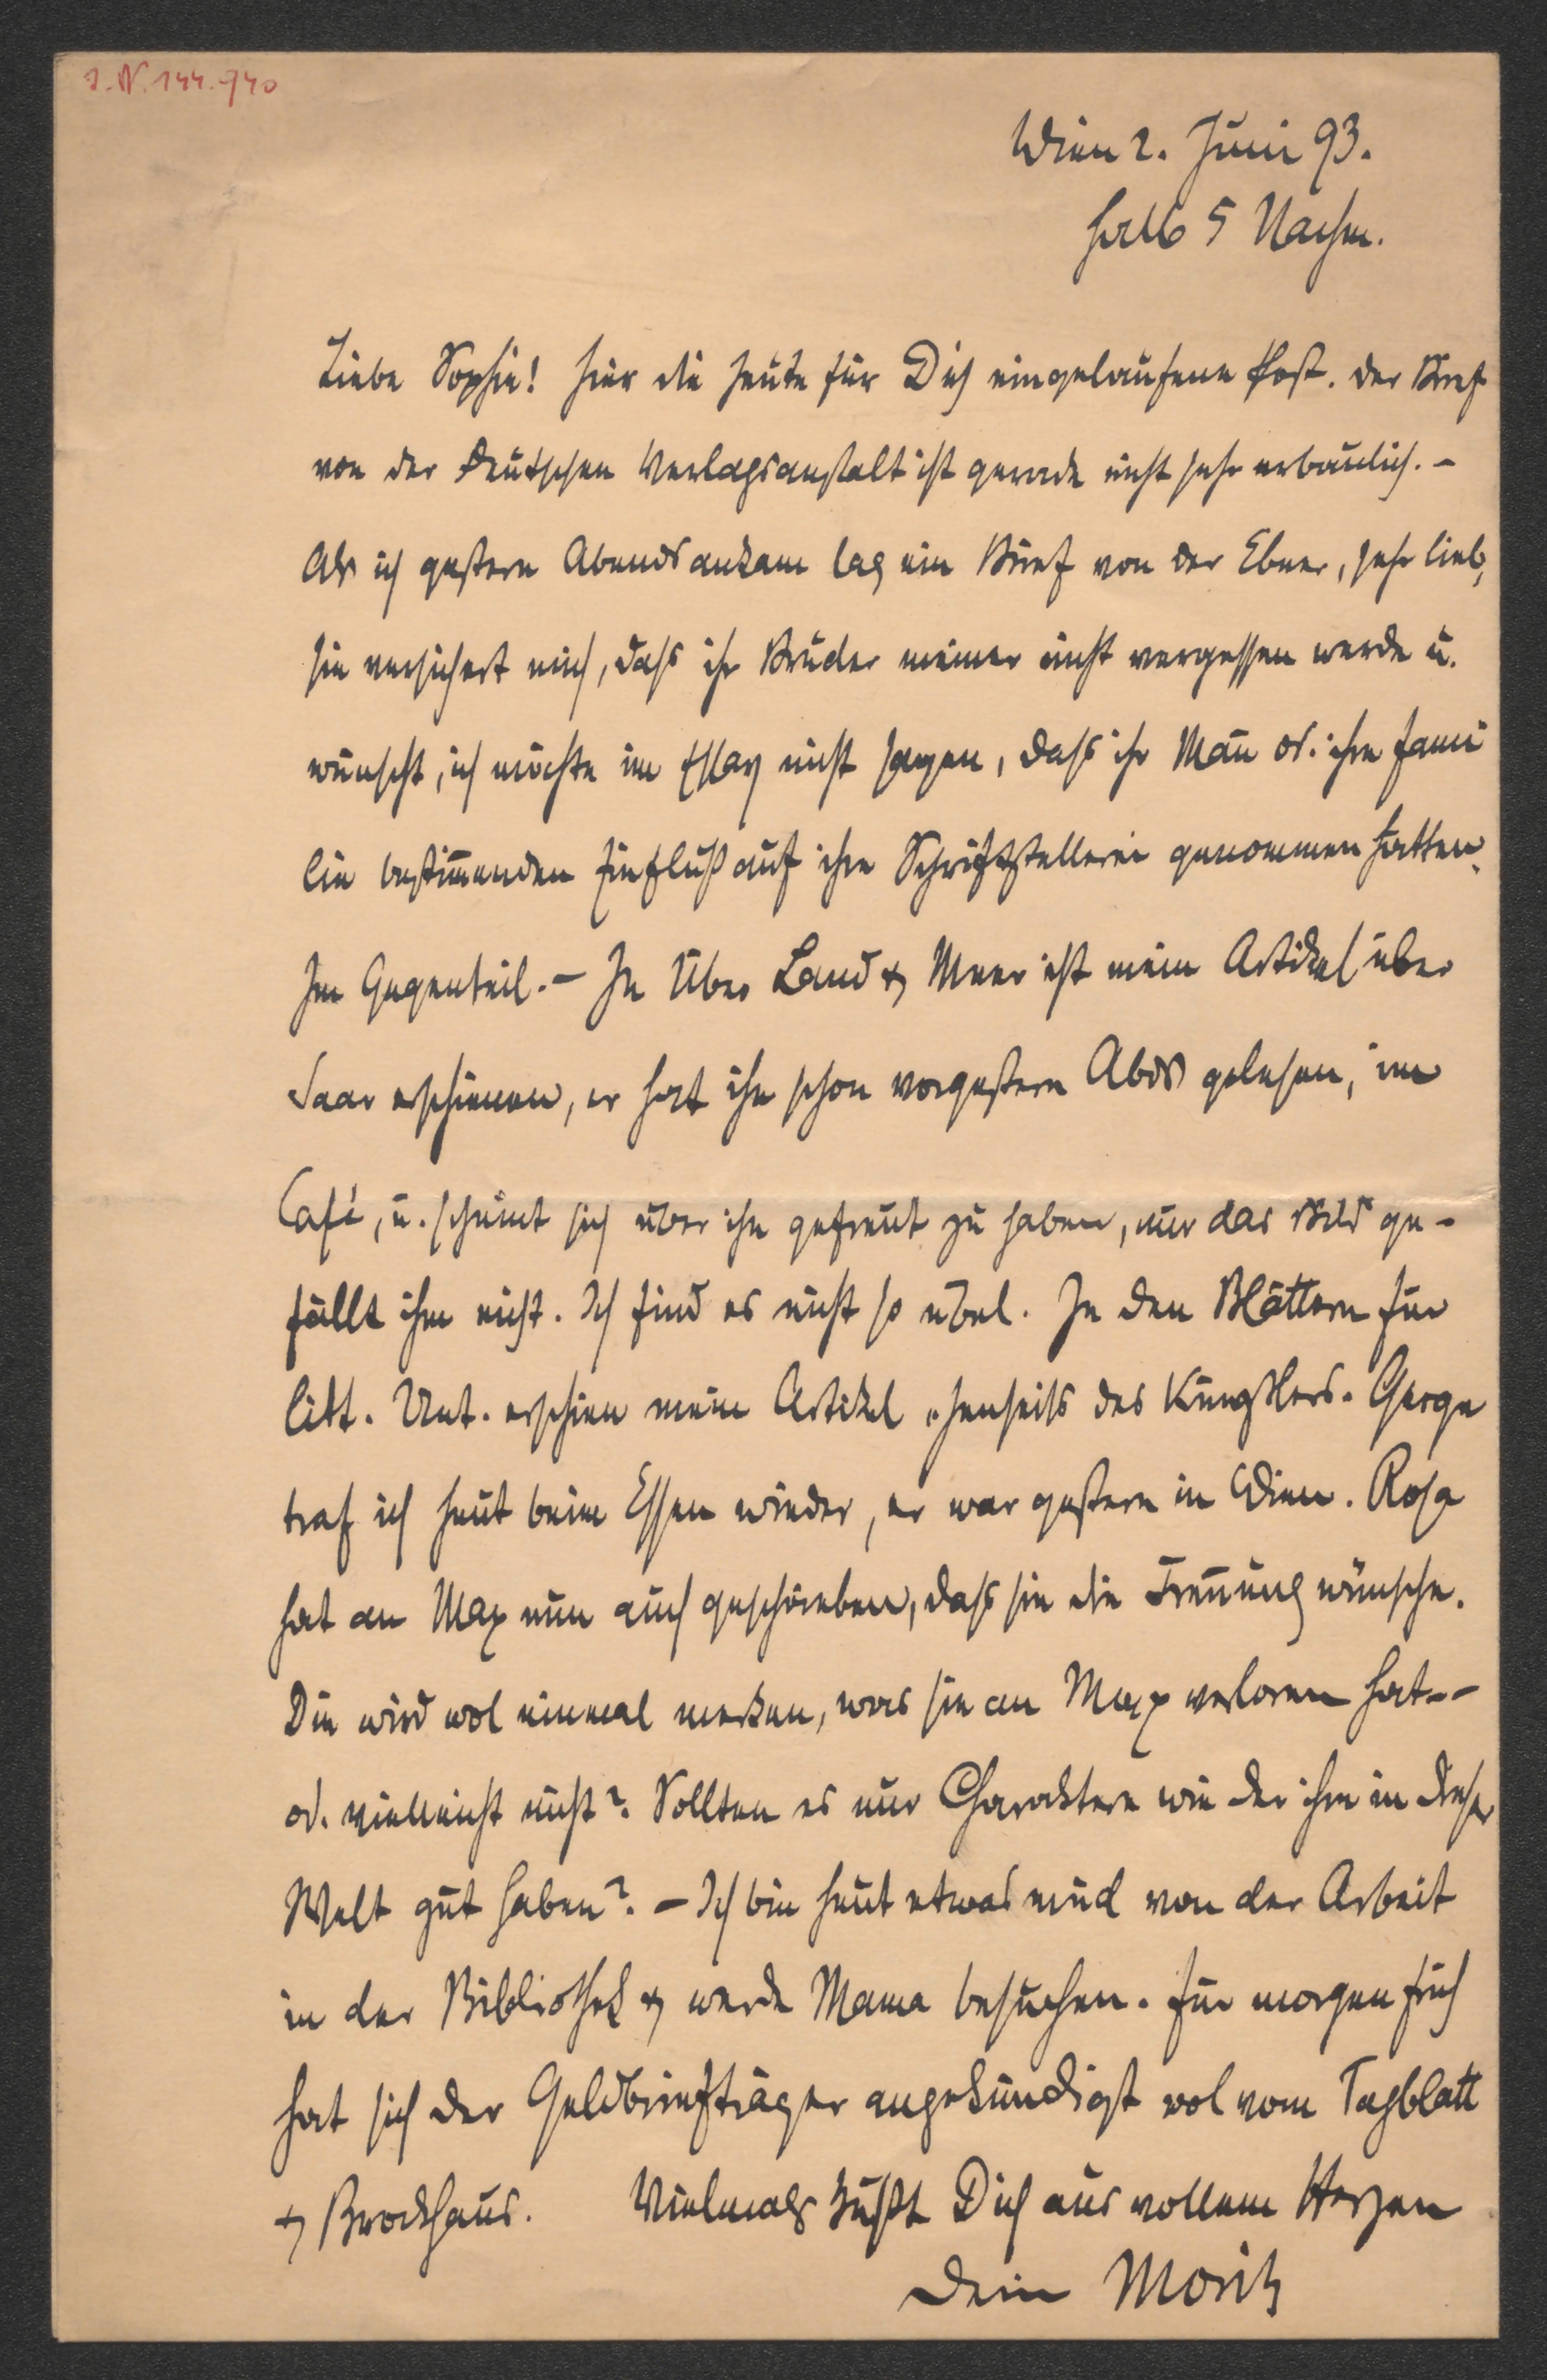 J. N. 144.940
Wien 2. Juni 93.
halb 5 Nachm.
Liebe Sophie! Hier die heute für Dich eingelaufene Post. Der Brief
von der Deutschen Verlagsanstalt ist gerade nicht sehr erbaulich. –
Als ich gestern Abends ankam lag ein Brief von der Ebner, sehr lieb,
sie versichert mich, daſs ihr Bruder meiner nicht vergessen werde u.
wünscht, ich möchte im Essay nicht sagen, daſs ihr Mañ od. ihre Fami
lie bestim̄enden Einfluß auf ihre Schriftstellerei genommen hatten.
Im Gegenteil. – In Über Land & Meer ist mein Artikel über
Saar erschienen, er hat ihn schon vorgestern Abds gelesen, im
Café, u. scheint sich über ihn gefreut zu haben, nur das Bild ge-
fällt ihm nicht. Ich find es nicht so übel. In den Blättern für
litt. Unt. erschien mein Artikel „Jenseits des Künstlers. George
traf ich heut beim Essen wieder, er war gestern in Wien. Rosa
hat an Max nun auch geschrieben, daſs sie die Treñung wünsche.
Die wird wol einmal merken, was sie an Max verloren hat--
od. vielleicht nicht? Sollten es nur Charaktere wie der ihre in dieser
Welt gut haben? – Ich bin heut etwas müd von der Arbeit
in der Bibliothek & werde Mama besuchen. Für morgen früh
hat sich der Geldbriefträger angekündigt wol vom Tagblatt
& Brockhaus. Vielmals küßt Dich aus vollem Herzen
Dein Moritz